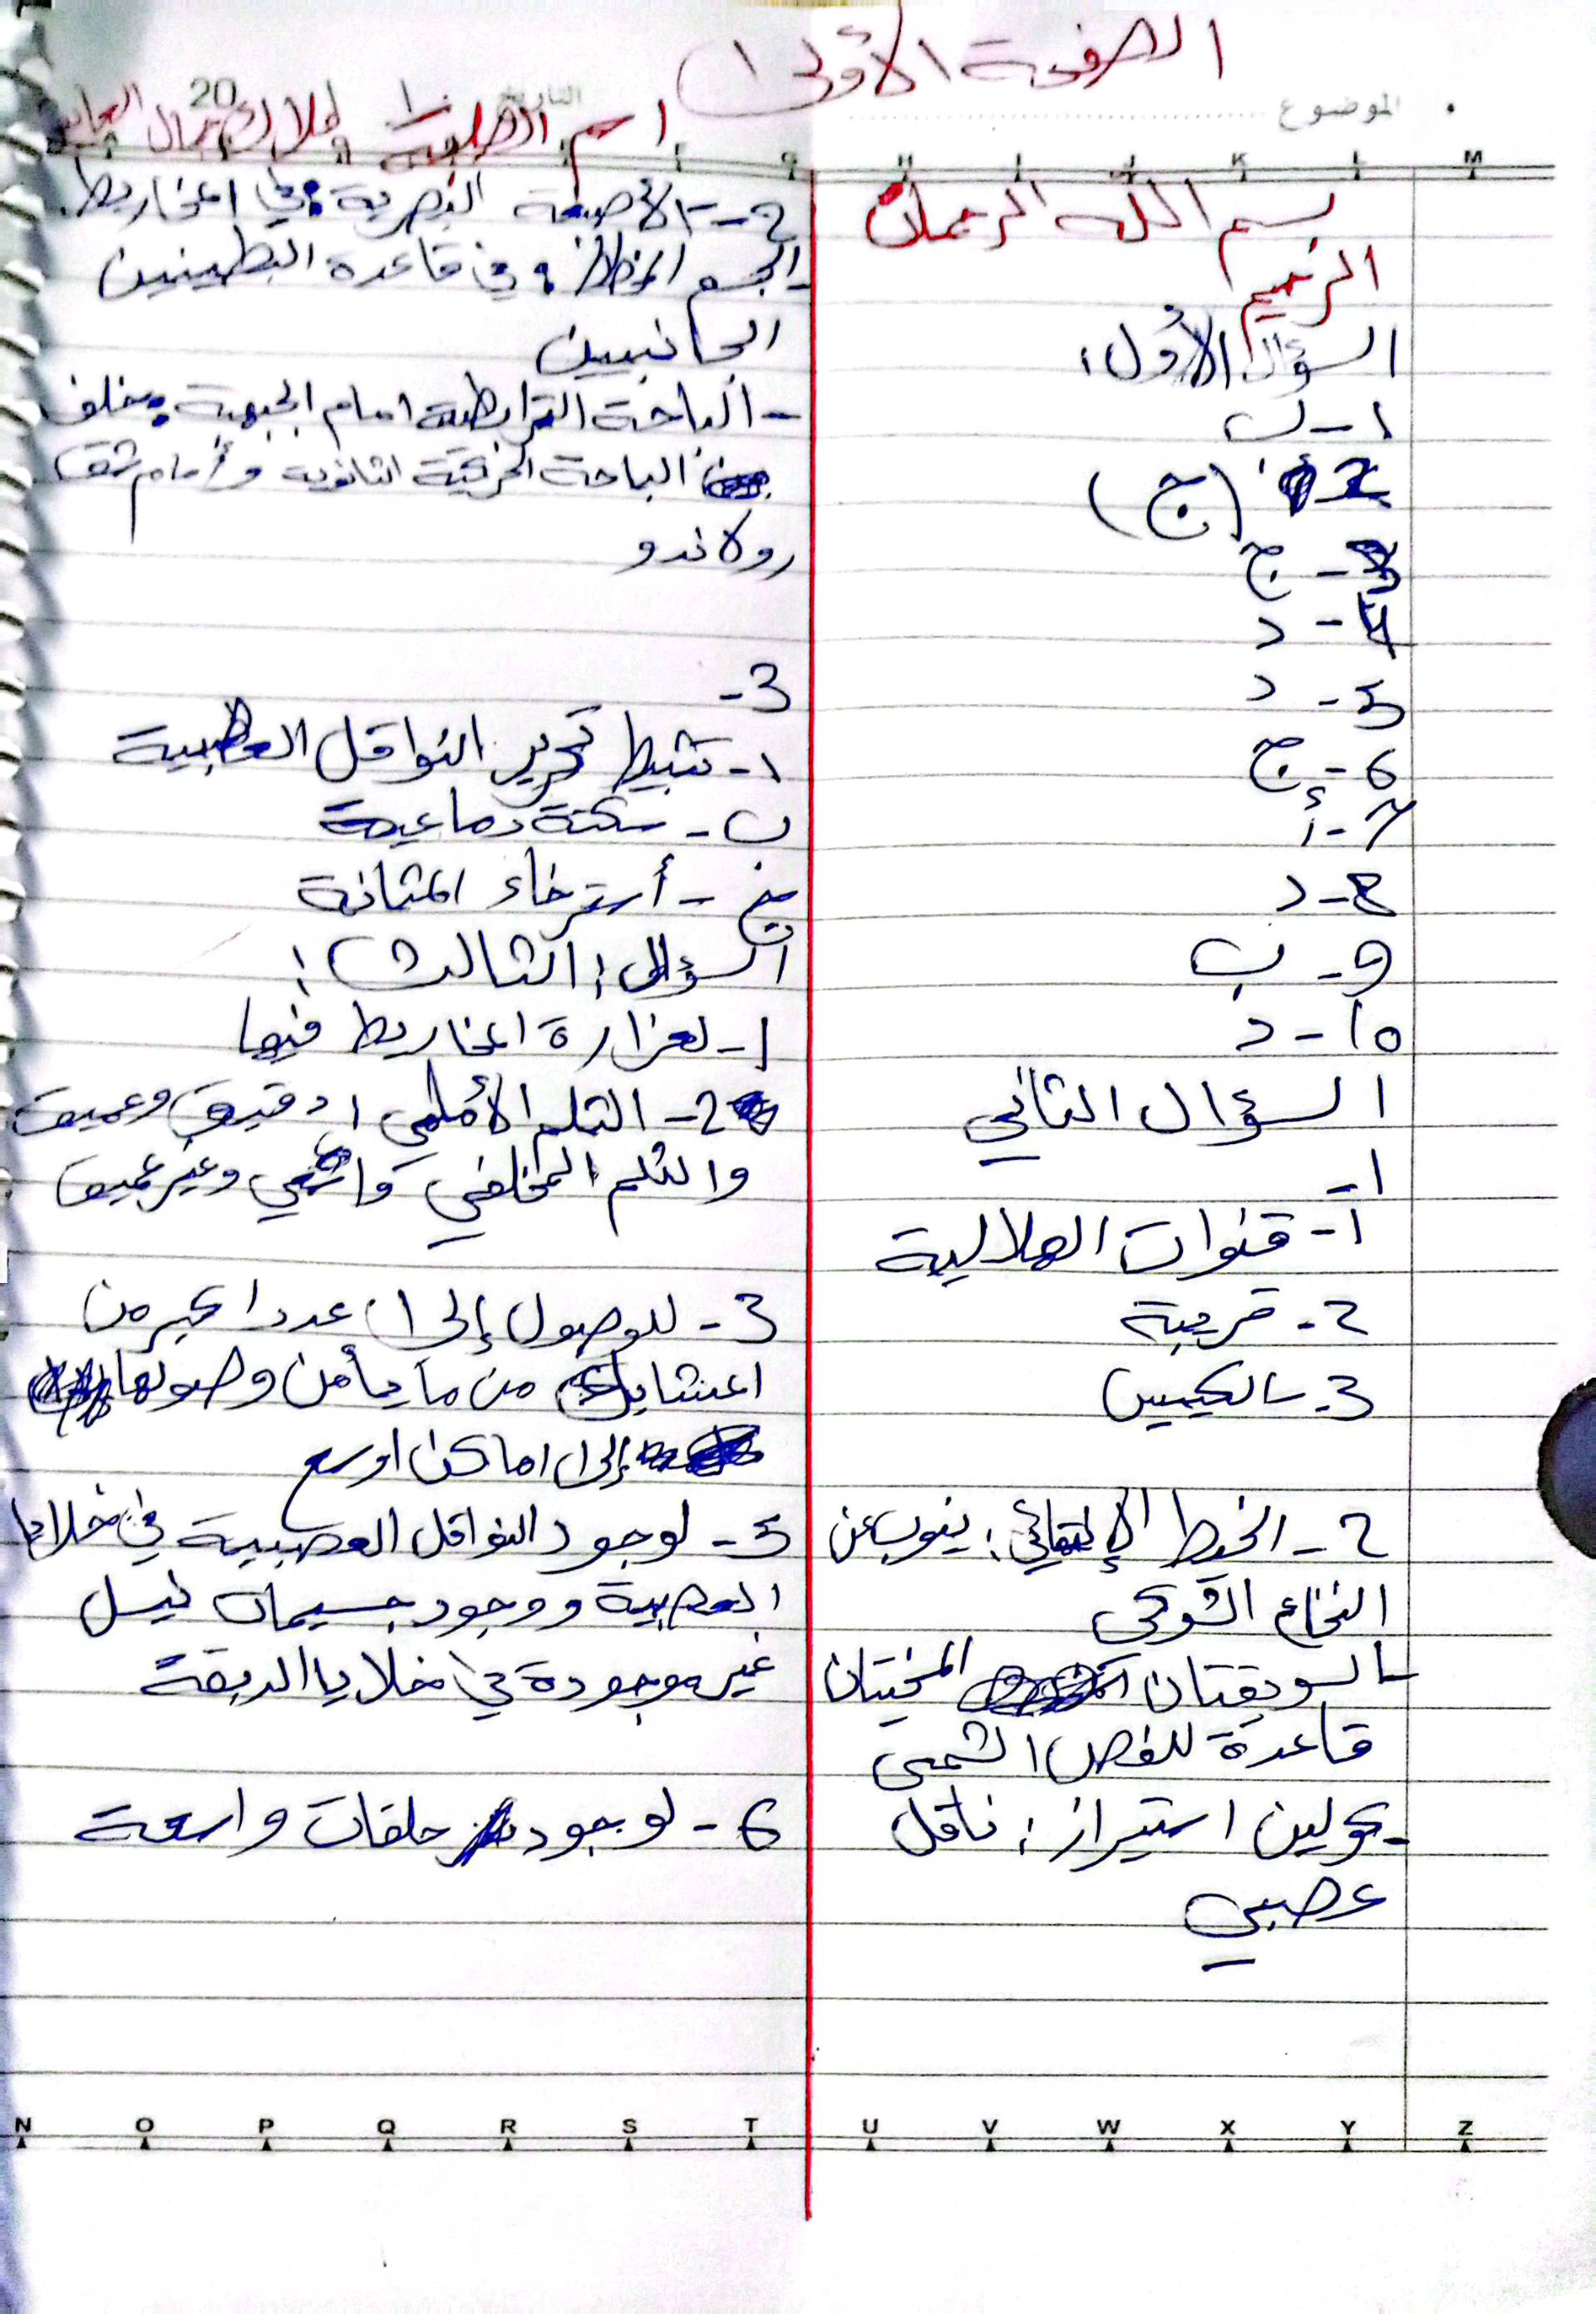 الصفحة الأولى ١
الموضوع
التاريخ
20
اسم الطالبة
M L K J I H G
بسم الله الرحمان
الرحيم
السؤال الأول:
١- ب
2- (ج)
3- ج
4- د
5- د
6- ج
7- أ
8- د
9- ب
10- د
السؤال الثاني
١-
أ- قنوات الهلالية
2- قريبة
3- الكييس
2- الخيط الإنتهائي: ينوب عن
النخاع الشوكي
- السويقتان المخيتان
قاعدة للفص الشمي
- كولين استيراز: ناقل
عصبي
2- - الأصبغة البصرية: في المخاريط
- الجسم المخطط: في قاعدة البطينين
الجانبيين
- الباحة الترابطية امام الجبهية: خلف
الباحة الحركية الثانوية وأمام شق
رولاندو
3-
١- تثبيط تحرير النواقل العصبية
ب- سكتة دماغية
ج- أسترخاء المثانة
السؤال: الثالث:
1- لغزارة المخاريط فيها
2- الثلم الأمامي: دقيق وعميق
والثلم الخلفي وغير عميق
3- للوصول إلى عددا كبر من
من ما يأمن وصولها
إلى اماكن اوسع
5- لوجود النواقل العصبية في خلايا
العصبية ووجود جسيمات نيسل
غير موجودة في خلايا الدبقة
6- لوجود حلقات واسعة
N O P Q R S T U V W X Y Z